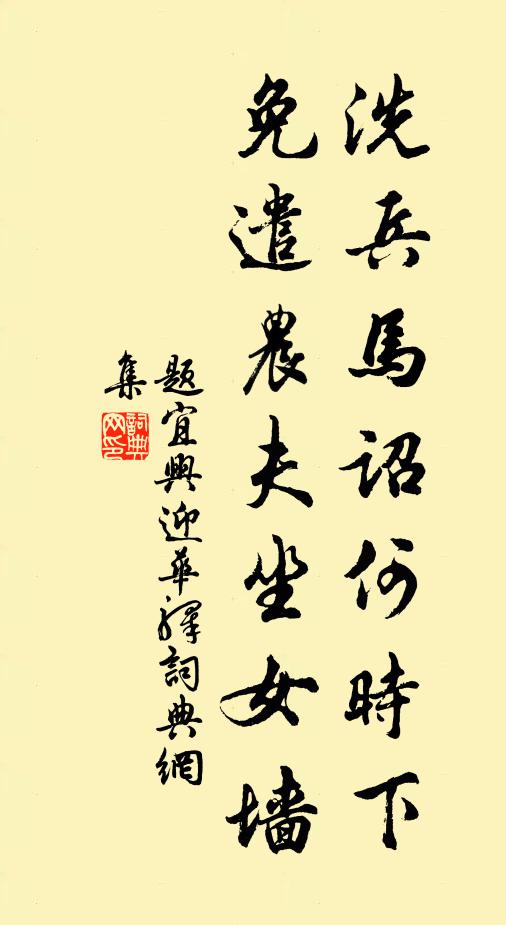 洗兵馬詔何時下
免遣農夫坐女墙
題宜興迎華驛詞典網
集
詞典
网印